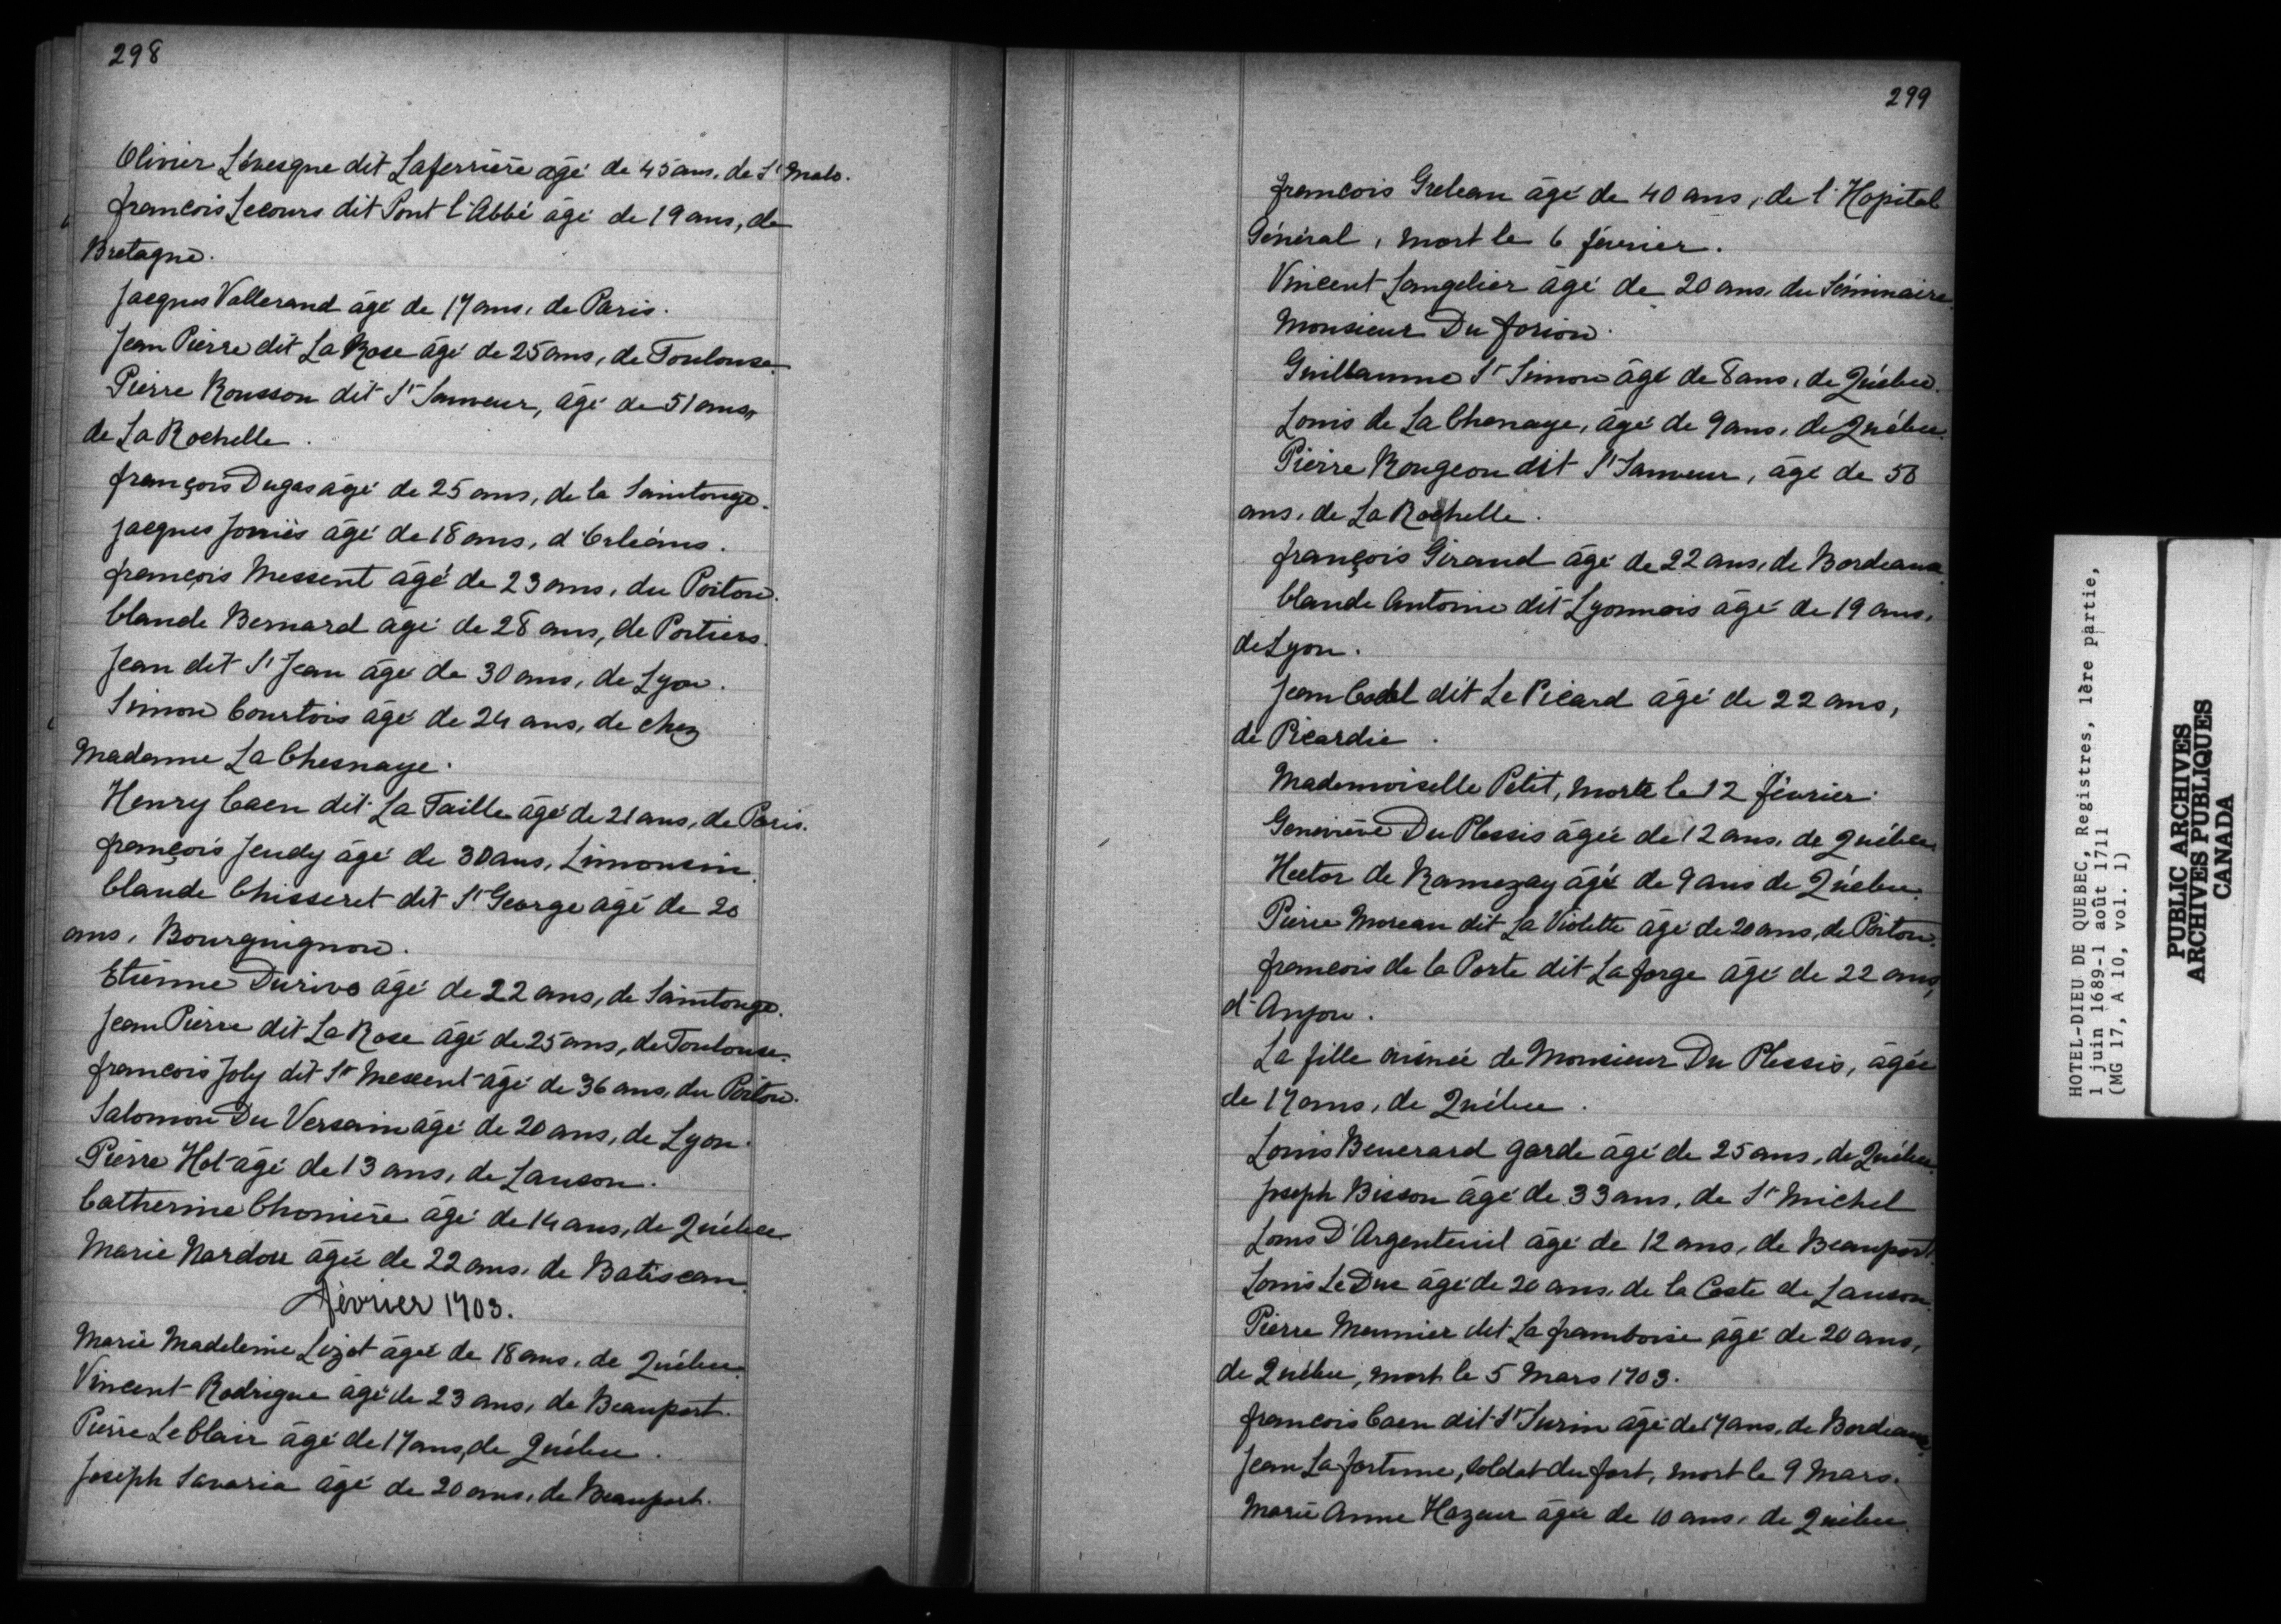 298
Olivier Lévesque dit Laferrière âgé de 45 ans, de St Malo.
françois Lecours dit Pont l'Abbé âgé de 19 ans, de
Bretagne.
Jacques Vallerand âgé de 17 ans, de Paris.
Jean Pierre dit La Rose âgé de 25 ans, de Toulouse.
Pierre Rousson dit St Sauveur, âgé de 51 ans,
de La Rochelle.
françois Dugas âgé de 25 ans, de la Saintonge.
Jacques Jouiès âgé de 18 ans, d'Orléans.
françois Messent âgé de 23 ans, du Poitou.
Claude Bernard âgé de 28 ans, de Poitiers.
Jean dit St Jean âgé de 30 ans, de Lyon.
Simon Courtois âgé de 24 ans, de chez
Madame La Chesnaye.
Henry Caen dit La Taille âgé de 21 ans, de Paris.
françois Jeudy âgé de 30 ans, Limousin.
Claude Chisseret dit St George âgé de 20
ans, Bourguignon.
Etienne Durivo âgé de 22 ans, de Saintonge.
Jean Pierre dit La Rose âgé de 25 ans, de Toulouse.
francois Joly dit St Messent âgé de 36 ans, du Poitou.
Salomon Du Versain âgé de 20 ans, de Lyon.
Pierre Hot âgé de 13 ans, de Lauson.
Catherine Chonière âgé de 14 ans, de Québec
Marie Nardou âgée de 22 ans, de Batiscan.
février 1703.
Marie Madeleine Lizot âgée de 18 ans, de Québec.
Vincent Rodrigue âgé de 23 ans, de Beauport.
Pierre Leclair âgé de 17 ans, de Québec.
Joseph Savaria âgé de 20 ans, de Beauport.
299
francois Greleau âgé de 40 ans, de l'Hopital
Général, mort le 6 février.
Vincent Langelier âgé de 20 ans, du Séminaire.
Monsieur Du forion.
Guillaume St Simon âgé de 8 ans, de Québec.
Louis de La Chenaye, âgé de 9 ans, de Québec.
Pierre Rougeon dit St Sauveur, âgé de 50
ans, de La Rochelle.
françois Giraud âgé de 22 ans, de Bordeaux.
Claude Antoine dit Lyonnais âgé de 19 ans,
de Lyon.
Jean Codel dit Le Picard âgé de 22 ans,
de Picardie.
Mademoiselle Petit, morte le 12 février.
Geneviève Du Plessis âgée de 12 ans, de Québec.
Hector de Ramezay âgé de 9 ans de Québec.
Pierre Moreau dit La Violette âgé de 20 ans, de Poitou.
francois de la Porte dit Laforge âgé de 22 ans,
d'Anjou.
La fille ainée de Monsieur Du Plessis, âgée
de 17 ans, de Québec.
Louis Beuerard garde âgé de 25 ans, de Québec.
Joseph Bisson âgé de 33 ans, de St Michel
Louis D'Argenteuil âgé de 12 ans, de Beauport.
Louis Le Duc âgé de 20 ans, de la Coste de Lauson.
Pierre Meunier dit La framboise âgé de 20 ans,
de Québec, mort le 5 Mars 1703.
francois Caen dit St Surin âgé de 17 ans, de Bordeaux.
Jean La fortune, soldat du fort, mort le 9 Mars.
Marie Anne Hazeur âgée de 10 ans, de Québec.
HOTEL-DIEU DE QUEBEC, Registres, 1ère partie,
1 juin 1689-1 août 1711
(MG 17, A 10, vol. 1)
PUBLIC ARCHIVES
ARCHIVES PUBLIQUES
CANADA